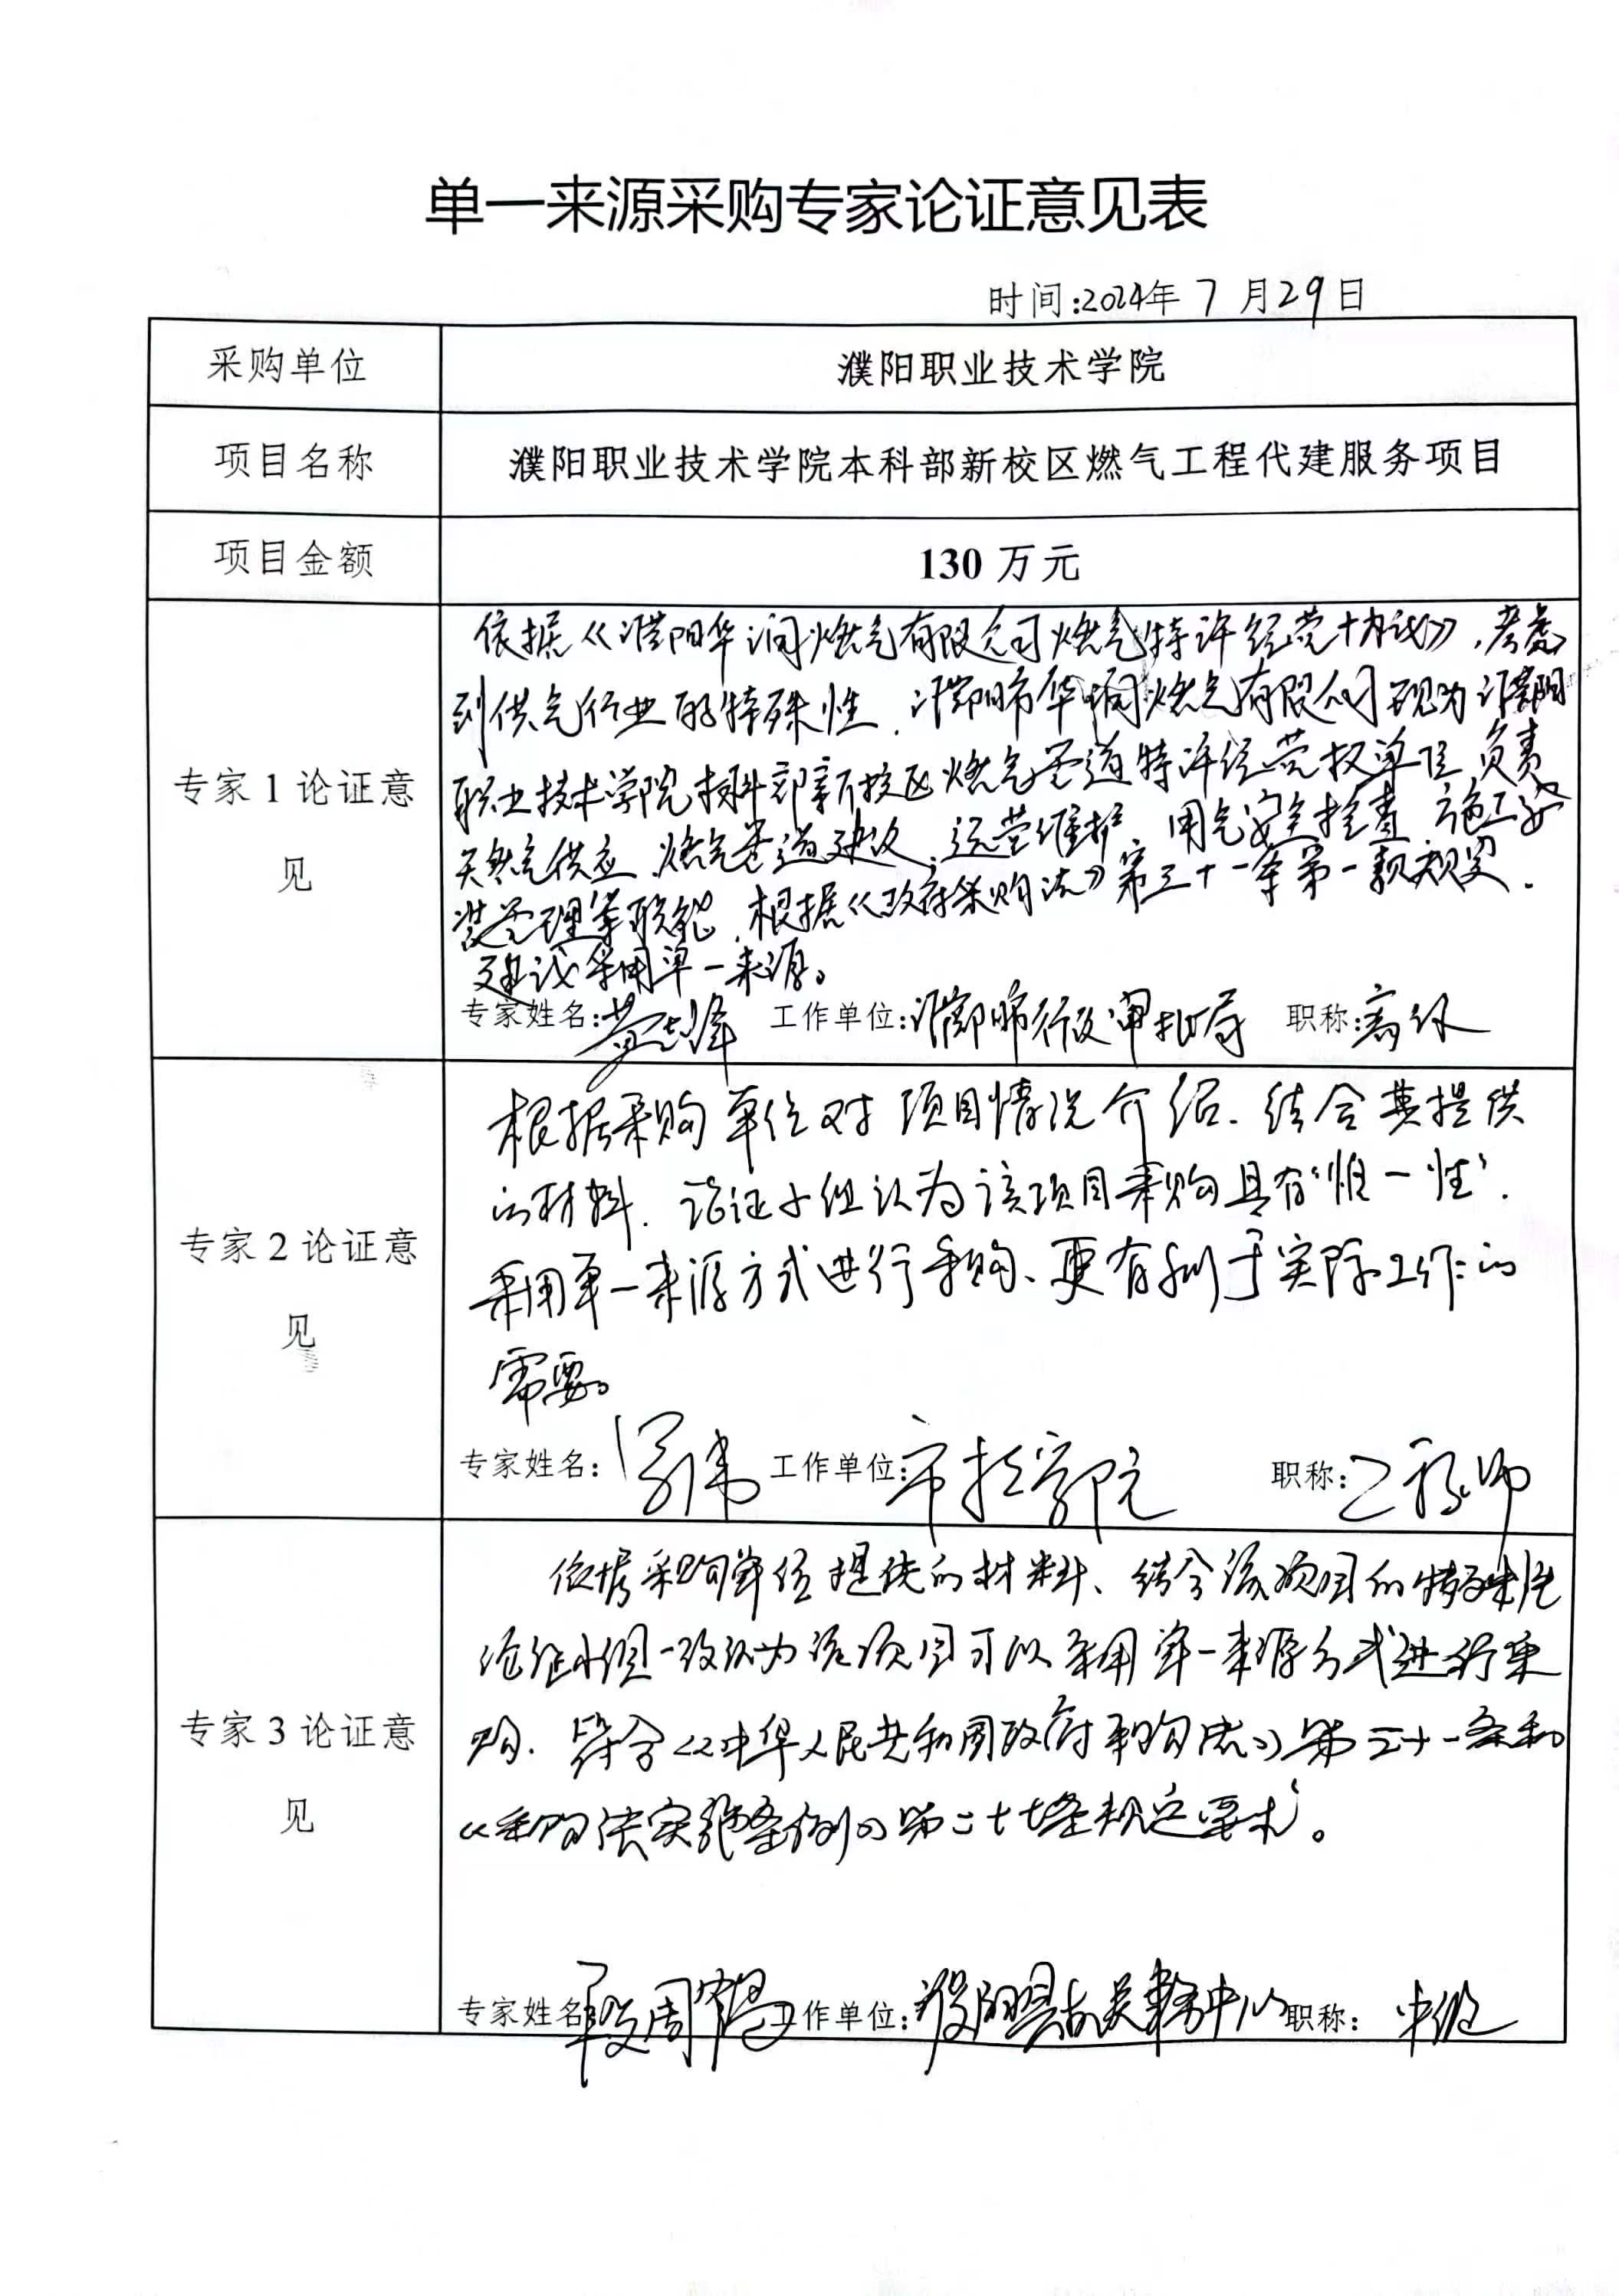 单一来源采购专家论证意见表
时间:2024年7月29日
采购单位
濮阳职业技术学院
项目名称
濮阳职业技术学院本科部新校区燃气工程代建服务项目
项目金额
130万元
专家1论证意见
依据《濮阳华润燃气有限公司燃气特许经营协议》,考虑
到供气行业的特殊性,濮阳市华润燃气有限公司现为濮阳
职业技术学院本科部新校区燃气管道特许经营权单位,负责
天然气供应、燃气管道建设、运营维护、用气安全检查、施工安
装管理等职能,根据《政府采购法》第三十一条第一款规定,
建议采用单一来源。
专家姓名: 工作单位:濮阳市行政审批局 职称:高级
专家2论证意见
根据采购单位对项目情况介绍,结合其提供
的材料,论证小组认为该项目采购具有“唯一性”,
采用单一来源方式进行采购、更有利于实际工作的
需要。
专家姓名: 工作单位: 职称:工程师
专家3论证意见
依据采购单位提供的材料、结合该项目的特殊性
论证小组一致认为该项目可以采用单一来源方式进行采
购,符合《中华人民共和国政府采购法》第三十一条和
《采购法实施条例》第二十七条规定要求。
专家姓名 工作单位: 职称:中级